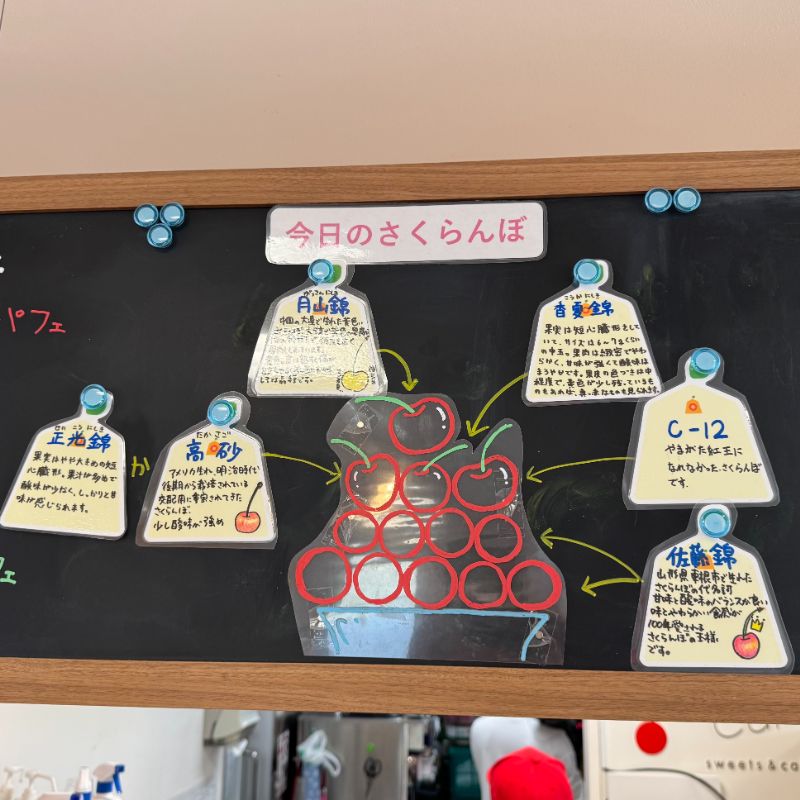 今日のさくらんぼ
パフェ
がっさんにしき
月山錦
中国の大連で生れた黄色い
こうかにしき
香夏錦
果実は短心臓形をして
いて、サイズは6〜7gくらい
の中玉。果肉は緻密でやわ
らかく、甘味が強くて酸味は
まろやかです。果皮の色づきは中
程度で、黄色が少し残っているも
のもあれば、真っ赤なものも見られます。
せいこうにしき
正光錦
果実はやや大きめの短
心臓形。果汁が多めで
酸味が少なく、しっかりと甘
味が感じられます。
か
たかさご
高砂
アメリカ生れ、明治時代
後期から栽培されている
交配用に重宝されてきた
さくらんぼ
少し酸味が強め
C-12
やまがた紅王に
なれなかったさくらんぼ
です.
佐藤錦
山形県東根市で生れた
さくらんぼの代名詞
甘味と酸味のバランスが良い
味とやわらかい食感が
100年愛される
さくらんぼの王様
です。
ェ
sweets & ca